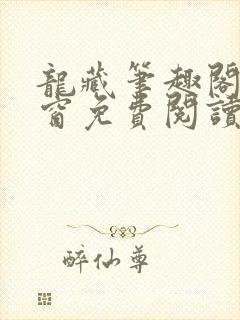 龍藏筆趣閣
窗免費閱讀
醉仙尊